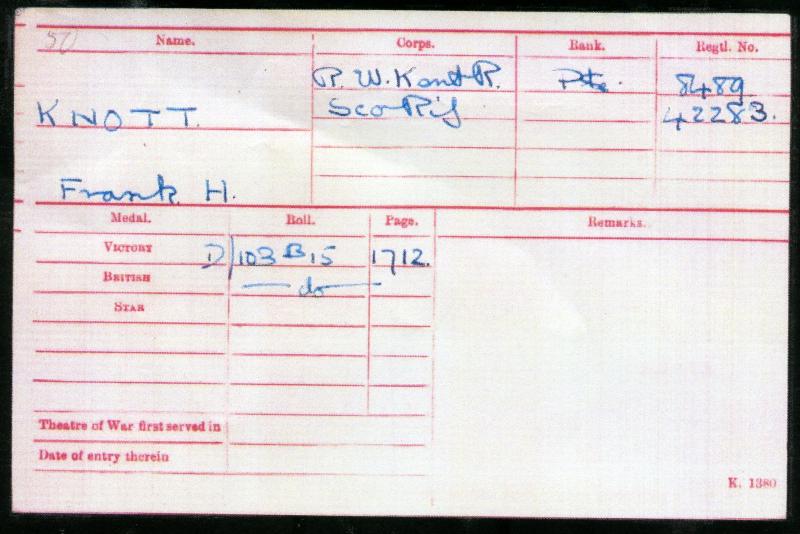 50
Name. Corps. Rank. Regtl. No.
R. W. Kent R. Pte. 8489
KNOTT. Sco Rif 42283.
Frank. H.
Medal. Roll. Page. Remarks.
VICTORY D/103 B 15 1712.
BRITISH — do —
STAR
Theatre of War first served in
Date of entry therein
K. 1380